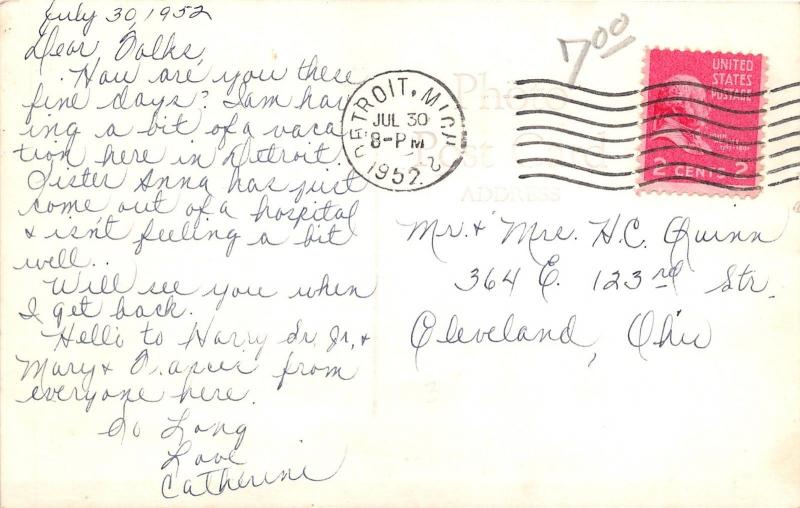 July 30, 1952
Dear Folks,
How are you these
fine days? I am hav
ing a bit of a vaca
tion here in Detroit.
Sister Anna has just
come out of a hospital
& isn't feeling a bit
well..
Will see you when
I get back.
Hello to Harry Sr. Jr. &
Mary & from
everyone here.
So Long
Love
Catherine
7.00
DETROIT, MICH. 2
JUL 30
8-PM
1952
UNITED
STATES
POSTAGE
2 CENTS 2
Photo
Post Card
ADDRESS
Mr. & Mrs. H.C. Quinn
364 E. 123rd Str.
Cleveland, Ohio